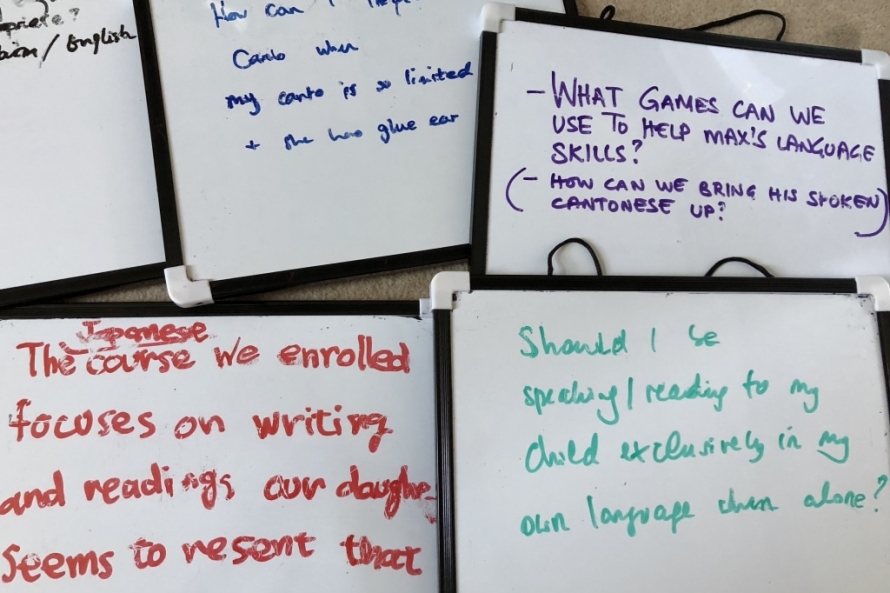 / English
How can I
Canto when
my canto is so limited
+ she has glue ear
- WHAT GAMES CAN WE
USE TO HELP MAX'S LANGUAGE
SKILLS?
(- HOW CAN WE BRING HIS SPOKEN
CANTONESE UP?)
Japanese
The course we enrolled
focuses on writing
and readings our daughe
seems to resent that
Should I be
speaking/reading to my
child exclusively in my
own language when alone?